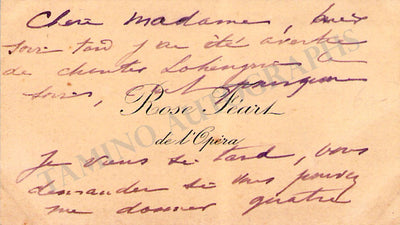 Chère Madame, hier
soir tard j'ai été avertie
de chanter Lohengrin ce
soir, et
Rose Féart
de l'Opéra
Je viens si tard, vous
demander si vous pouvez
me donner quatre
TAMINO AUTOGRAPHS